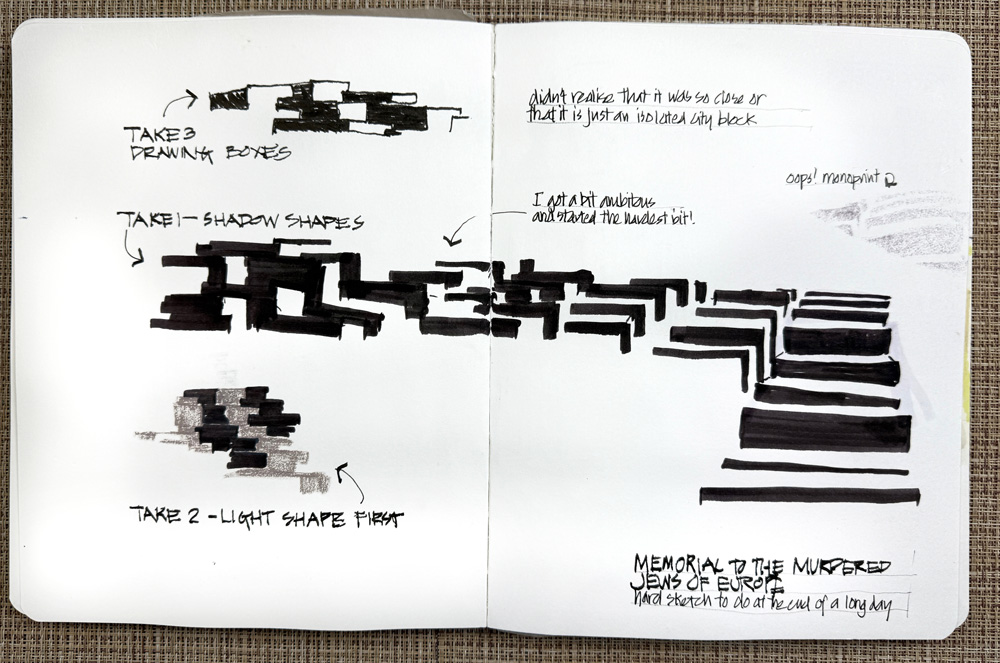 TAKE 3
DRAWING BOXES
TAKE 1 - SHADOW SHAPES
TAKE 2 - LIGHT SHAPE FIRST
didn't realise that it was so close or
that it is just an isolated city block
oops! monoprint
I got a bit ambitous
and started the hardest bit!
MEMORIAL TO THE MURDERED
JEWS OF EUROPE
hard sketch to do at the end of a long day